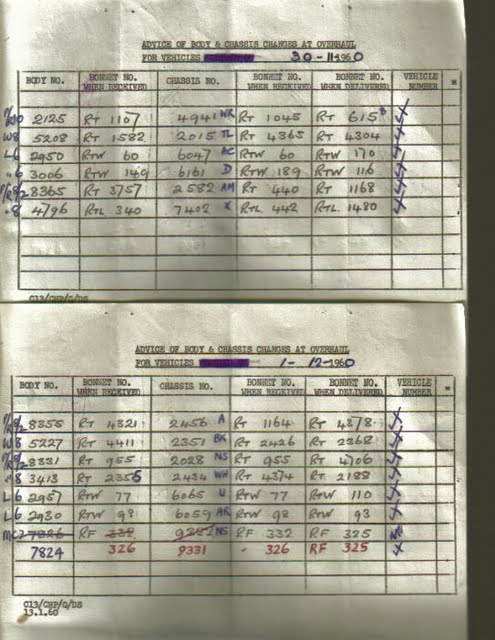 ADVICE OF BODY & CHASSIS CHANGES AT OVERHAUL
FOR VEHICLES 30-11-1960
BODY NO. BONNET NO. WHEN RECEIVED CHASSIS NO. BONNET NO. WHEN RECEIVED BONNET NO. WHEN DELIVERED VEHICLE NUMBER
2125 RT 1107 4941 WR RT 1045 RT 615
W8 5208 RT 1582 2015 TL RT 4365 RT 4304
L6 2950 RTW 60 6047 AC RTW 60 RTW 170
6 3006 RTW 149 6161 D RTW 189 RTW 116
8365 RT 3757 2582 AM RT 440 RT 1168
8 4796 RTL 340 7402 X RTL 442 RTL 1480
C13/CHP/Q/DS
ADVICE OF BODY & CHASSIS CHANGES AT OVERHAUL
FOR VEHICLES 1-12-1960
BODY NO. BONNET NO. WHEN RECEIVED CHASSIS NO. BONNET NO. WHEN RECEIVED BONNET NO. WHEN DELIVERED VEHICLE NUMBER
8355 RT 4321 2456 A RT 1164 RT 4378
W8 5227 RT 4411 2351 BK RT 2426 RT 2368
8331 RT 955 2028 NS RT 955 RT 4706
8 3413 RT 2434 WH RT 4374 RT 2188
L6 2957 RTW 77 6065 U RTW 77 RTW 110
L6 2930 RTW 98 6059 AR RTW 98 RTW 93
7826 RF 332 NS RF 332 RF 325
7824 326 9331 326 RF 325
C13/CHP/Q/DS
13.1.60